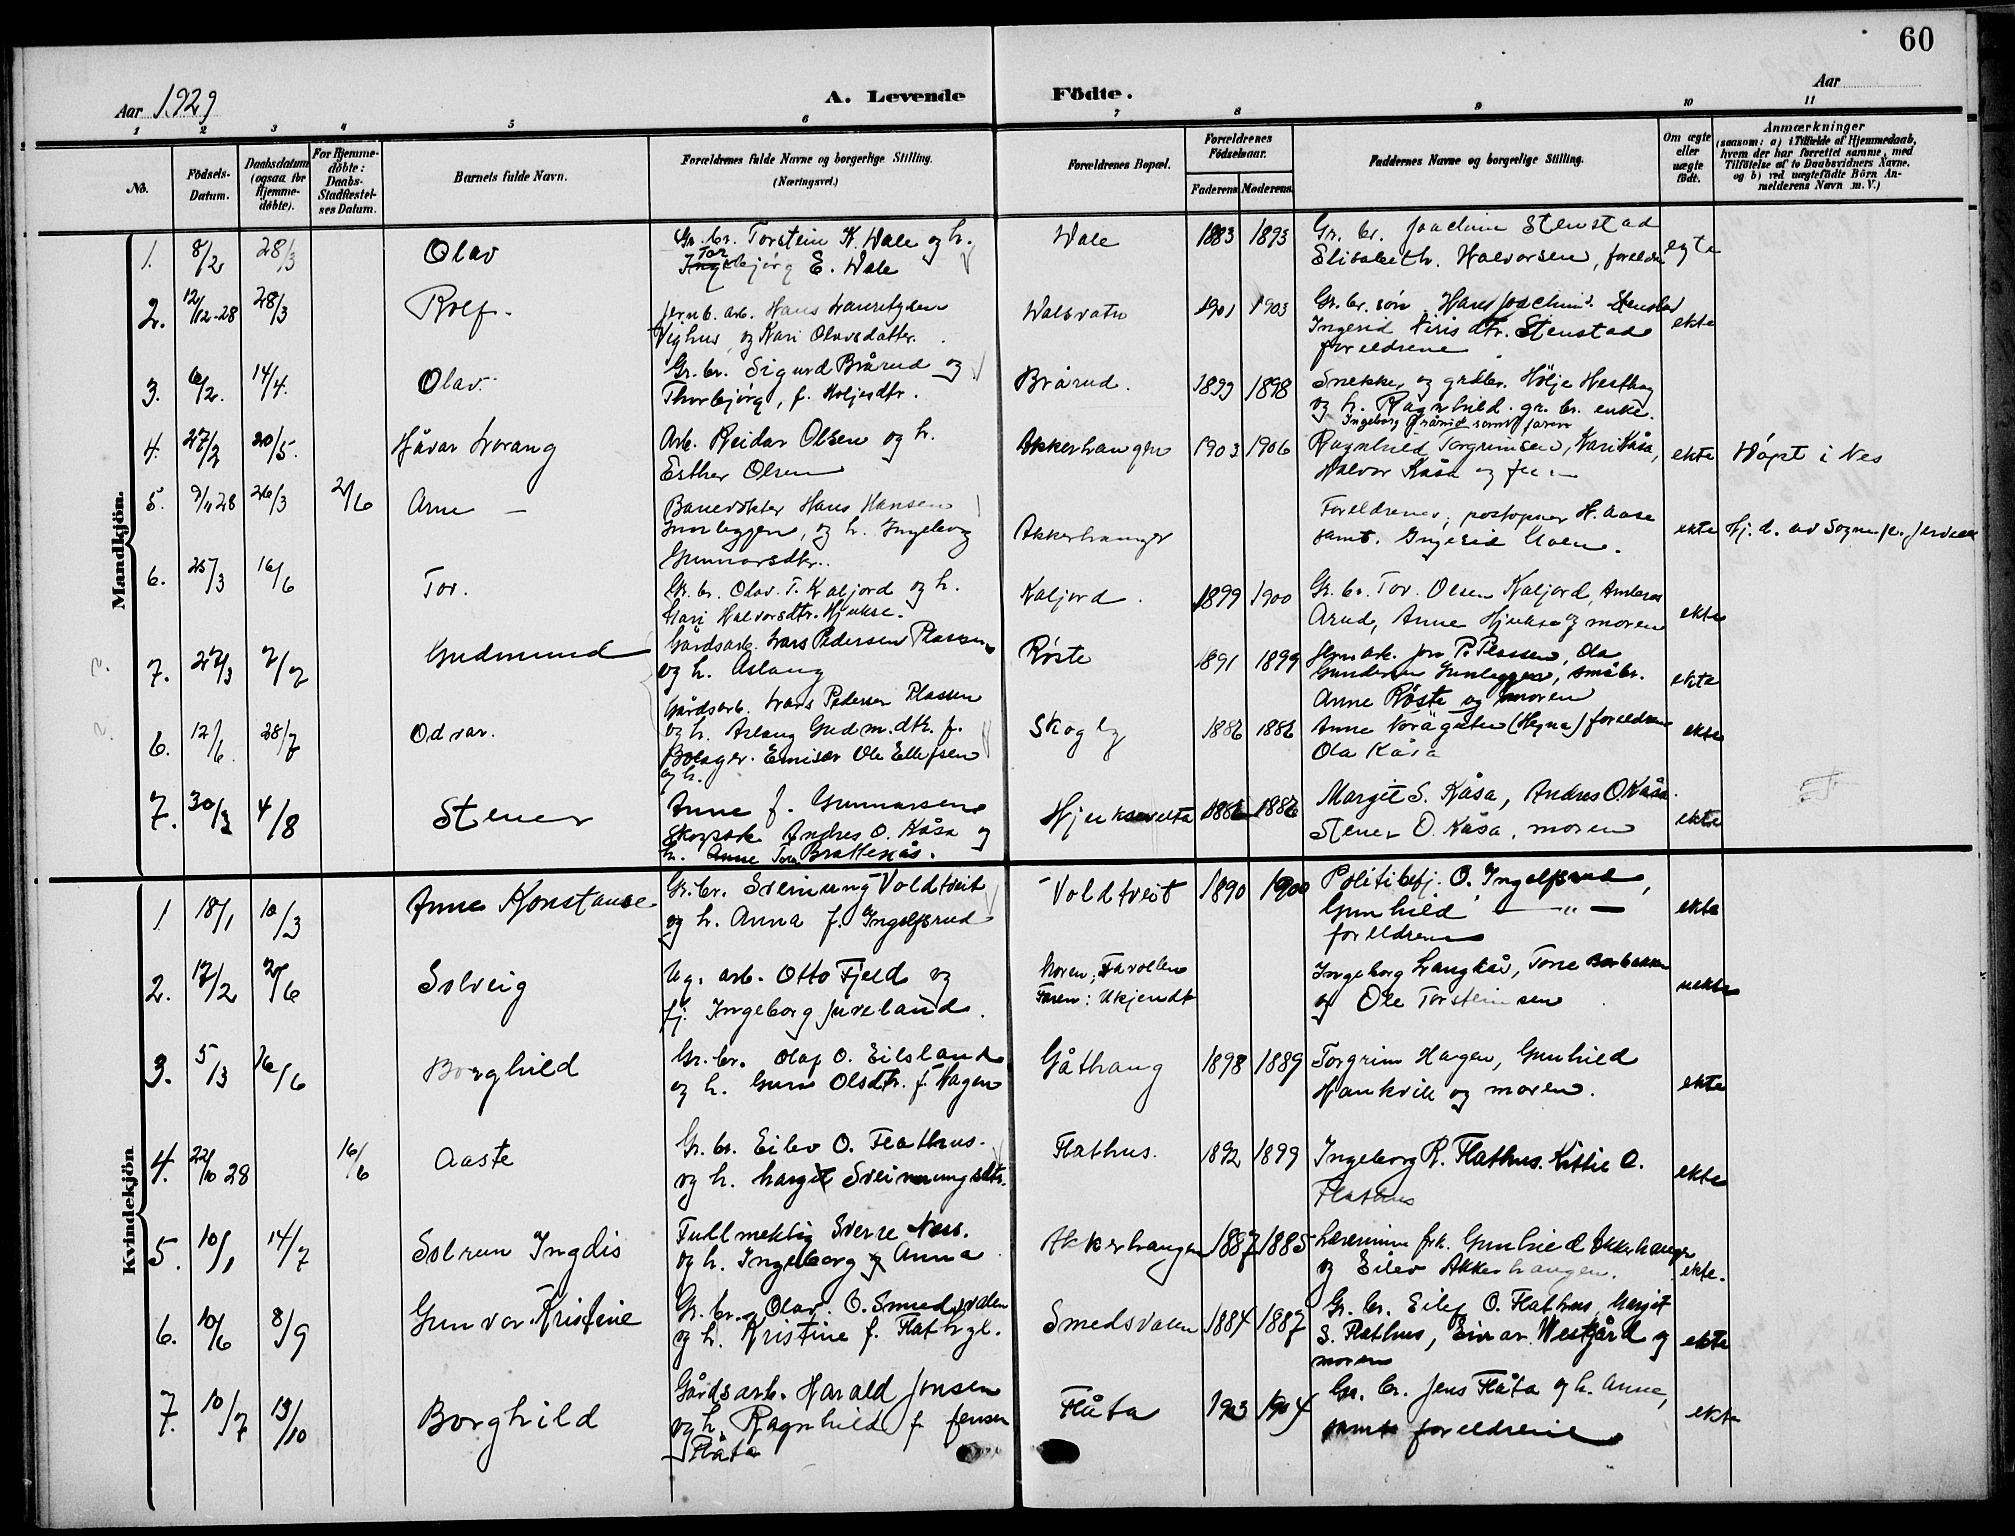 60
Aar 1929
A. Levende Födte.
Aar
1 2 3 4 5 6 7 8 9 10 11
No.
Fødsels-Datum.
Daabsdatum (ogsaa for Hjemme-døbte).
For Hjemme-døbte: Daabs-Stadfæstel-ses Datum.
Barnets fulde Navn.
Forældrenes fulde Navne og borgerlige Stilling. (Næringsvei.)
Forældrenes Bopæl.
Forældrenes Fødselsaar.
Faderens Moderens
Faddernes Navne og borgerlige Stilling.
Om ægte eller uægte født.
Anmærkninger
(saasom: a) i Tilfælde af Hjemmedaab, hvem der har forrettet samme, med Tilføielse af to Daabsvidners Navne, og b) ved uægtefødte Børn An-melderens Navn m. V.)
Mandkjön.
1. 8/2 28/3 Olav
Gr. br. Torstein K. Wale og h.
Torbjørg E. Wale
Wale 1883 1893
Gr. br. Joachim Stenstad
Elisabeth Halvorsen, foreldre
egte
2. 12/12-28 28/3 Rolf
Jernb. arb. Hans
Vighus og Kari Olavsdatter.
Walsvatn 1901 1903
Gr. br. søn Hans Joachims. Stenstad
Ingerid dtr. Stenstad
foreldrene
ekte
3. 6/2. 14/4. Olav.
Gr. br. Sigurd Brårud og
Thorbjørg, f. Holjesdtr.
Brårud. 1899 1898
Snekker og grdbr. Hölje Hesthag
og h. Ragnhild. gr. br. enke.
Ingeborg Brårud samt faren
4. 27/2 20/5. Håvar Lorang
Arb. Reidar Olsen og h.
Esther Olsen
Akkerhaugen 1903 1906
Ragnhild Torgrimsen, Kari Kåsa,
Halvor Kåsa og
ekte Döpt i Nes
5. 9/11 28 26/3 2/6 Arne
Banevokter Hans Hansen
Gunleggen, og h. Ingeborg
Gunnarsdtr.
Akkerhaugen
Foreldrene, postopner H. Aase
samt. Ingerid Moen.
ekte Hj. d. av Sognepr.
6. 25/3 16/6 Tor.
Gr. br. Olav T. Kaljord og h.
Mari Halvorsdtr. Hjukse.
Kaljord. 1899 1900
Gr. br. Tor Olsen Kaljord, Andreas
Arud, Anne Hjukse og moren
ekte
7. 27/3 7/7 Gudmund
Gårdsarb. Lars Pedersen Plassen
og h. Aslaug
Røste 1891 1899
Jernarb. Jon P. Plassen, Ola
Gundersen Gunleggen, småbr.
Anne Røste og moren
ekte
Gårdsarb. Lars Pedersen Plassen
og h. Aslaug Gudm. dtr. f.
6. 12/6. 28/7 Odvar.
Bolager. Emisær Ole Ellefsen
og h.
Skogly 1886 1886
Anne Norågata (Hegna) foreldrene
Ola Kåsa
ekte
7. 30/3 4/8 Stener
Anne f. Gunnarsen
Skogsarb. Andres O. Kåsa og
h. Anne Tora Brattenås.
Hjukse 1886 1886
Margit S. Kåsa, Andres O. Kåsa
Stener O. Kåsa, moren
ekte
Kvindekjön
1 18/1 10/3 Anne Konstanse
Gr. br. Sveinung Voldtveit
og h. Anna f. Ingolfsrud
Voldtveit 1890 1900
Politibetj. O. Ingolfsrud,
Gunhild — " —
foreldrene
ekte
2. 17/2 2/6 Solveig
Ug. arb. Otto Fjeld og
pj. Ingeborg Juveland.
Moren: Farvollen
Faren: Ukjendt
Ingeborg Langkås, Tone
og Ole Torsteinsen
uekte
3. 5/3 16/6 Borghild
Gr. br. Olaf O. Eilsland
og h. Guro Olsdtr. f. Hagen
Gåthaug 1898 1889
Torgrim Hagen, Gunhild
Haukvik og moren.
ekte
4. 22/10 28 16/6 Aaste
Gr. br. Eilev O. Flathus.
og h. Margit Sveinungsdtr.
Flathus. 1892 1899
Ingeborg R. Flathus. Kittil O.
Flathus
ekte
5. 10/1 14/7 Solrun Ingdis
Fullmektig Sverre Næss.
og h. Ingeborg Anna
Akkerhaugen 1887 1885
Lærerinne frk. Gunhild Akkerhaugen
og Eilev Akkerhaugen.
ekte.
6. 10/6 8/9 Gunvor Kristine
Gr. br. Olav O. Smedsvalen
og h. Kristine f. Flathgl.
Smedsvalen 1884 1887
Gr. br. Eilef O. Flathus, Margit
S. Flathus, Einar Westgård og
moren
ekte
7. 10/7 13/10 Borghild
Gårdsarb. Harald Jonsen
og h. Ragnhild f. Jensen
Flåta
Flåta 1903 1904
Gr. br. Jens Flåta og h. Anne,
samt foreldrene
ekte